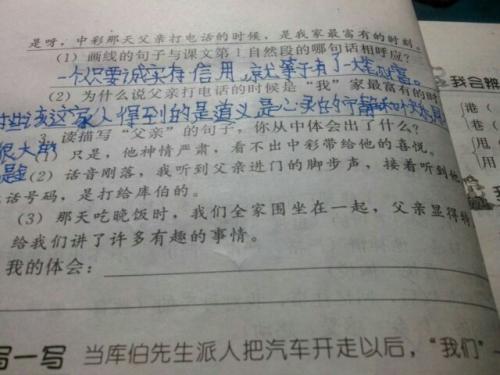 是呀,中彩那天父亲打电话的时候,是我家最富有的时刻。
(1) 画线的句子与课文第1自然段的哪句话相呼应?
一个人只要诚实有信用,就等于有了一大笔财富。
(2) 为什么说父亲打电话的时候是“我”家最富有的时
这家人得到的是道义是心灵的
3. 读描写“父亲”的句子,你从中体会出了什么?
只是,他神情严肃,看不出中彩带给他的喜悦。
(2) 话音刚落,我听到父亲进门的脚步声,接着听到他
话号码,是打给库伯的。
(3) 那天吃晚饭时,我们全家围坐在一起,父亲显得特
给我们讲了许多有趣的事情。
我的体会:
写一写 当库伯先生派人把汽车开走以后,“我们”
我会辨
港(
巷(
甩(
用(